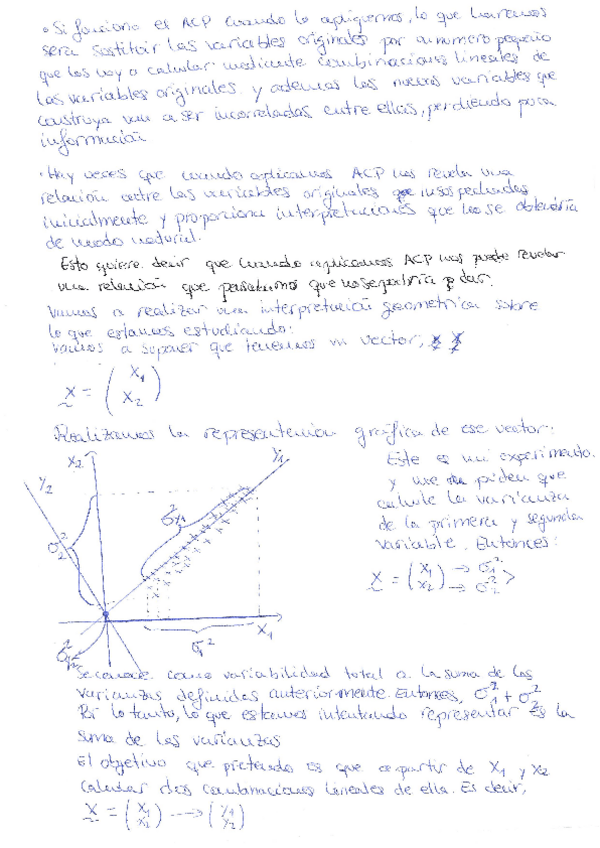 • Si funciona el ACP cuando lo apliquemos, lo que haremos
será sustituir las variables originales por un numero pequeño
que los voy a calcular mediante combinaciones lineales de
las variables originales y ademas las nuevas variables que
construya van a ser incorreladas entre ellas, perdiendo poca
información
· Hay veces que cuando aplicamos ACP nos revela una
relación entre las variables originales que insospechadas
inicialmente y proporciona interpretaciones que no se obtendría
de modo natural.
Esto quiere decir que cuando aplicamos ACP nos puede revelar
una relación que pensabamos que no se podría dar.
Vamos a realizar una interpretación geometrica sobre
lo que estamos estudiando:
Vamos a suponer que tenemos un vector, X
X = (X1
X2)
Realizamos la representación gráfica de ese vector:
Este es mi experimento.
y me piden que
calcule la varianza
de la primera y segunda
variable. Entonces:
X = (X1 → σ1²
X2) → σ2² >
X2
Y2
Y1
σ²Y1
σ2²
X1
σ1²
Se conoce como variabilidad total a la suma de las
varianzas definidas anteriormente. Entonces, σ1² + σ2²
Por lo tanto, lo que estamos intentando representar es la
suma de las varianzas
El objetivo que pretendo es que a partir de X1 y X2
calcular dos combinaciones lineales de ella. Es decir,
X = (X1 X2) ---> (Y1 Y2)